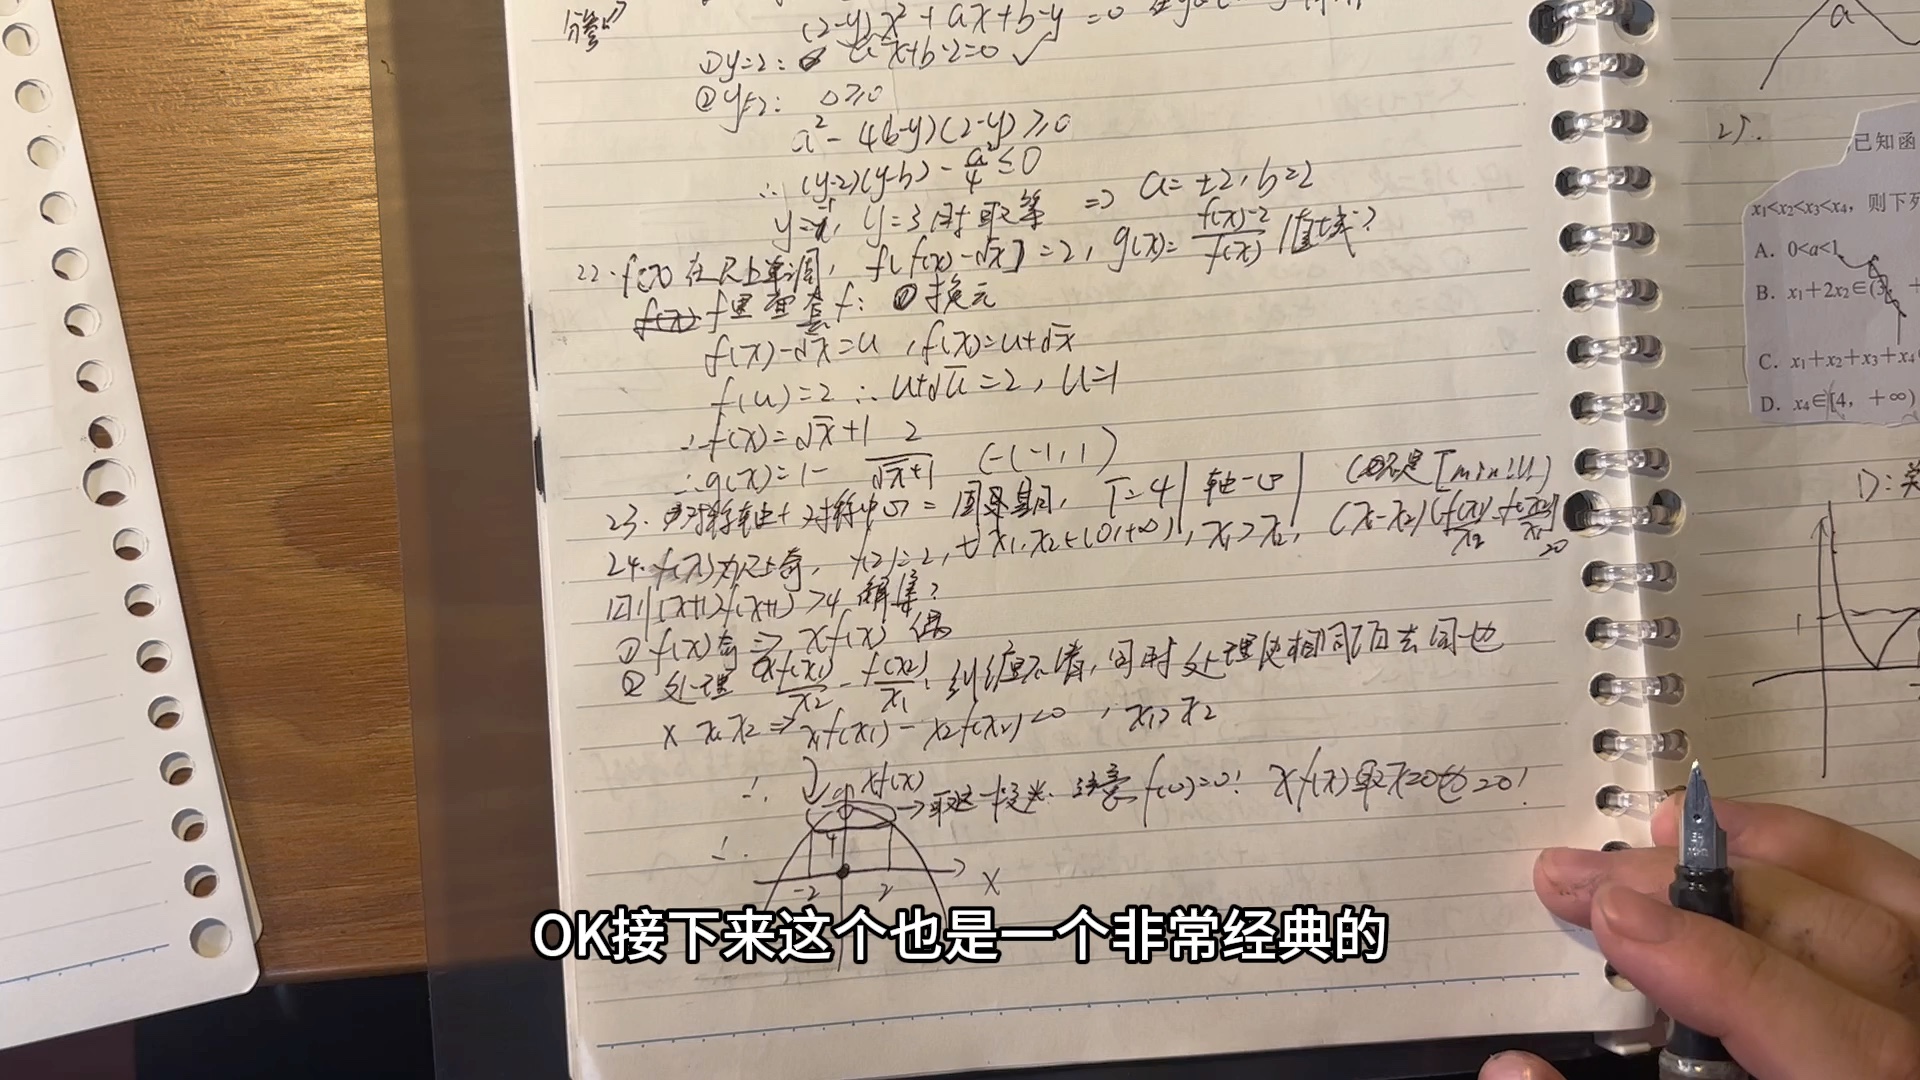 (2-y)x²+ax+b-y=0
①y=2: ax+b-2=0 ✓
②y≠2: Δ≥0
a²-4(b-y)(2-y)≥0
∴(y-2)(y-b)-a²/4≤0
y=-1, y=3时取等 => a=±2, b=2
22.f(x)在R上单调, f[f(x)-√x]=2, g(x)=(f(x)-2)/f(x) 值域?
f里重含f: ①换元
f(x)-√x=u, f(x)=u+√x
f(u)=2 ∴u+√u=2, u=1
∴f(x)=√x+1
∴g(x)=1-2/(√x+1) (-1,1)
23.对称轴+对称中心=周期, T=4|轴-心| (不是Tmin!!!)
24.f(x)为R上奇, f(2)=2, ∀x₁,x₂∈(0,+∞), x₁>x₂, (x₁-x₂)(f(x₁)/x₂-f(x₂)/x₁)
则(x+1)f(x+1)>4 解集?
①f(x)奇=>xf(x)偶
②处理 f(x₁)/x₂-f(x₂)/x₁: 纠缠不清,同时处理使相同项去同一边
×x₁x₂=>x₁f(x₁)-x₂f(x₂)<0, x₁>x₂
∴ xf(x) →取这一段 注意f(0)=0! xf(x)取x=0也=0!
∴ 4
-2 2 x
a
25.
已知函
x₁<x₂<x₃<x₄，则下列
A. 0<a<1
B. x₁+2x₂∈(3, +
C. x₁+x₂+x₃+x₄
D. x₄∈[4，+∞)
D:
1
OK接下来这个也是一个非常经典的